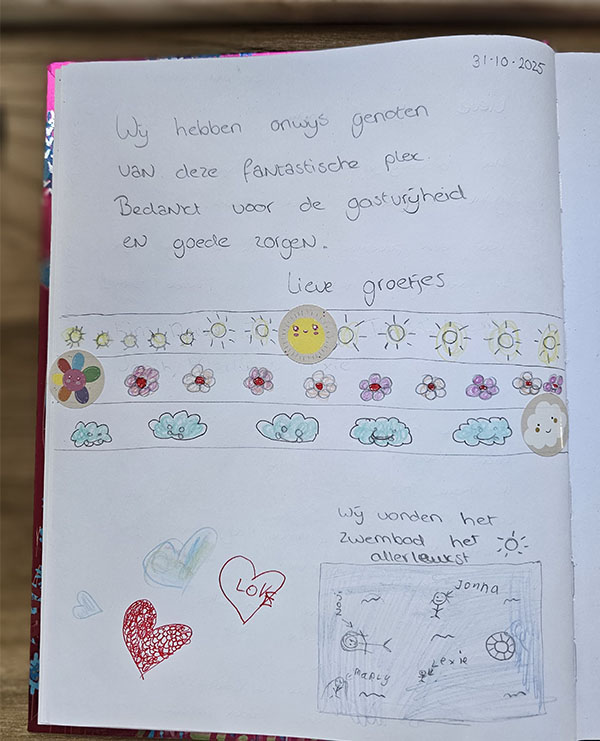 31-10-2025
Wij hebben onwijs genoten
van deze fantastische plek.
Bedankt voor de gastvrijheid
en goede zorgen.
Lieve groetjes
Wij vonden het
zwembad het
allerleukst
LOVE
Jonna
Novi
Lexie
Marly